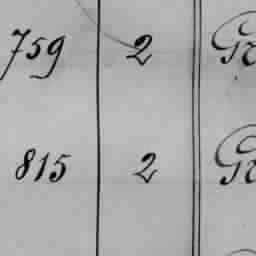 759 2
815 2